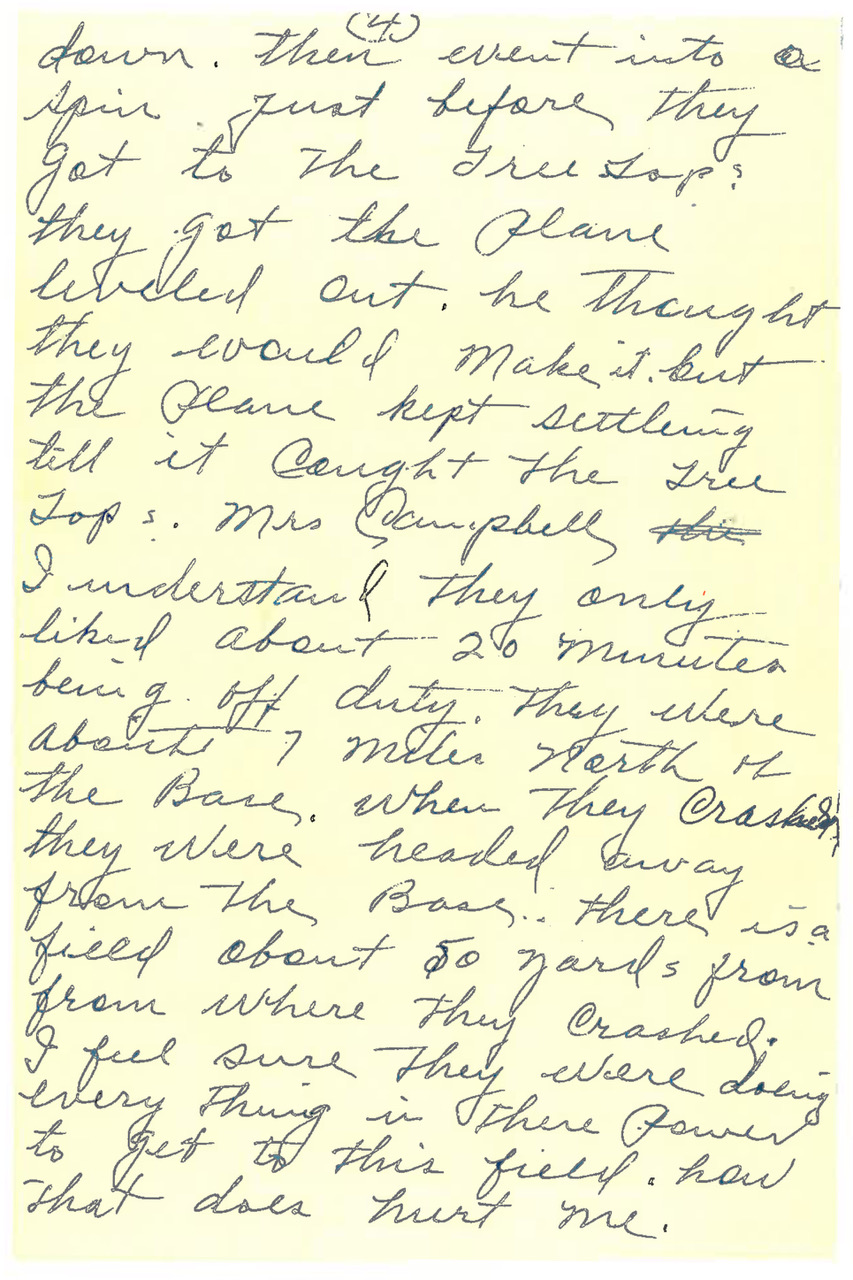 (4)
down. then went into a
spin just before they
got to the Tree Tops.
they got the Plane
leveled out. he thought
they would make it. but
the Plane kept settling
till it Caught the Tree
Tops. Mrs Campbell, the
I understand they only
liked about 20 minutes
being off duty. They were
about 7 miles North of
the Base. when they Crashed,
they were headed away
from the Base. there is a
field about 50 yards from
from where they Crashed.
I feel sure they were doing
every thing in there Power
to get to this field. how
that does hurt me.